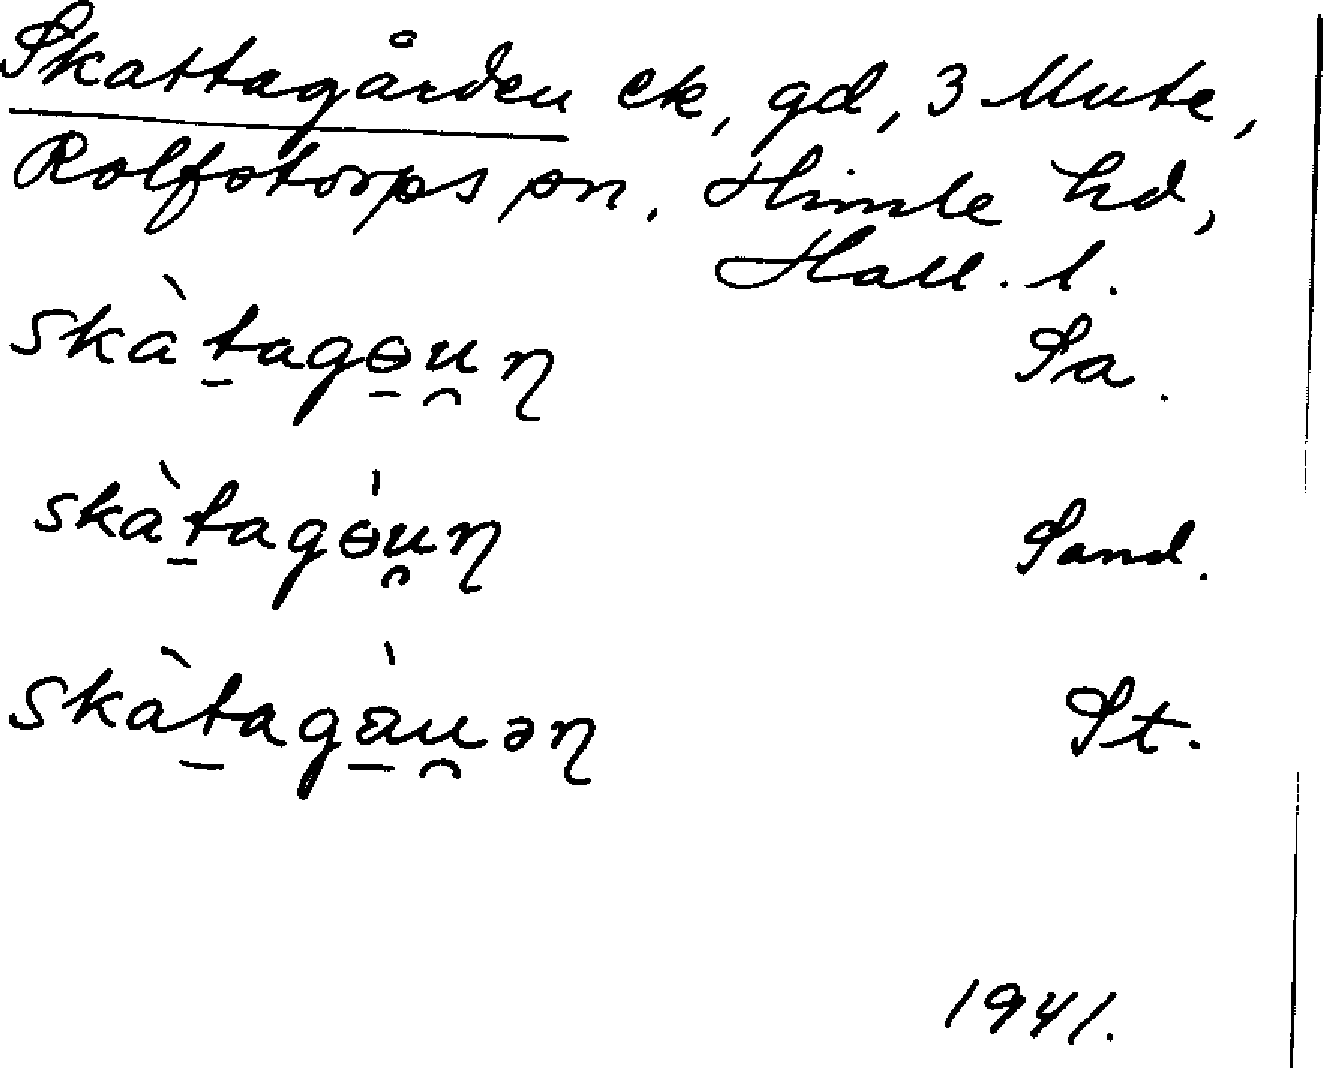 Skattagården ek, gd, 3 Mute,
Rolfstorps sn. Himle hd,
Hall. l.
skàt̠agɵ̠u̯ɳ Sa.
skàt̠agɵ́u̯ɳ Sand.
skàt̠agà̠u̯əɳ St.
1941.